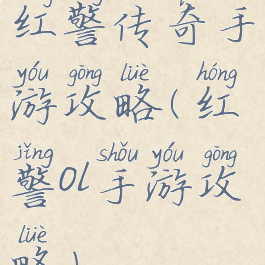 红警传奇手
yóu gōng lüè hóng
游攻略(红
jǐng shǒu yóu gōng
警0l手游攻
lüè
略)